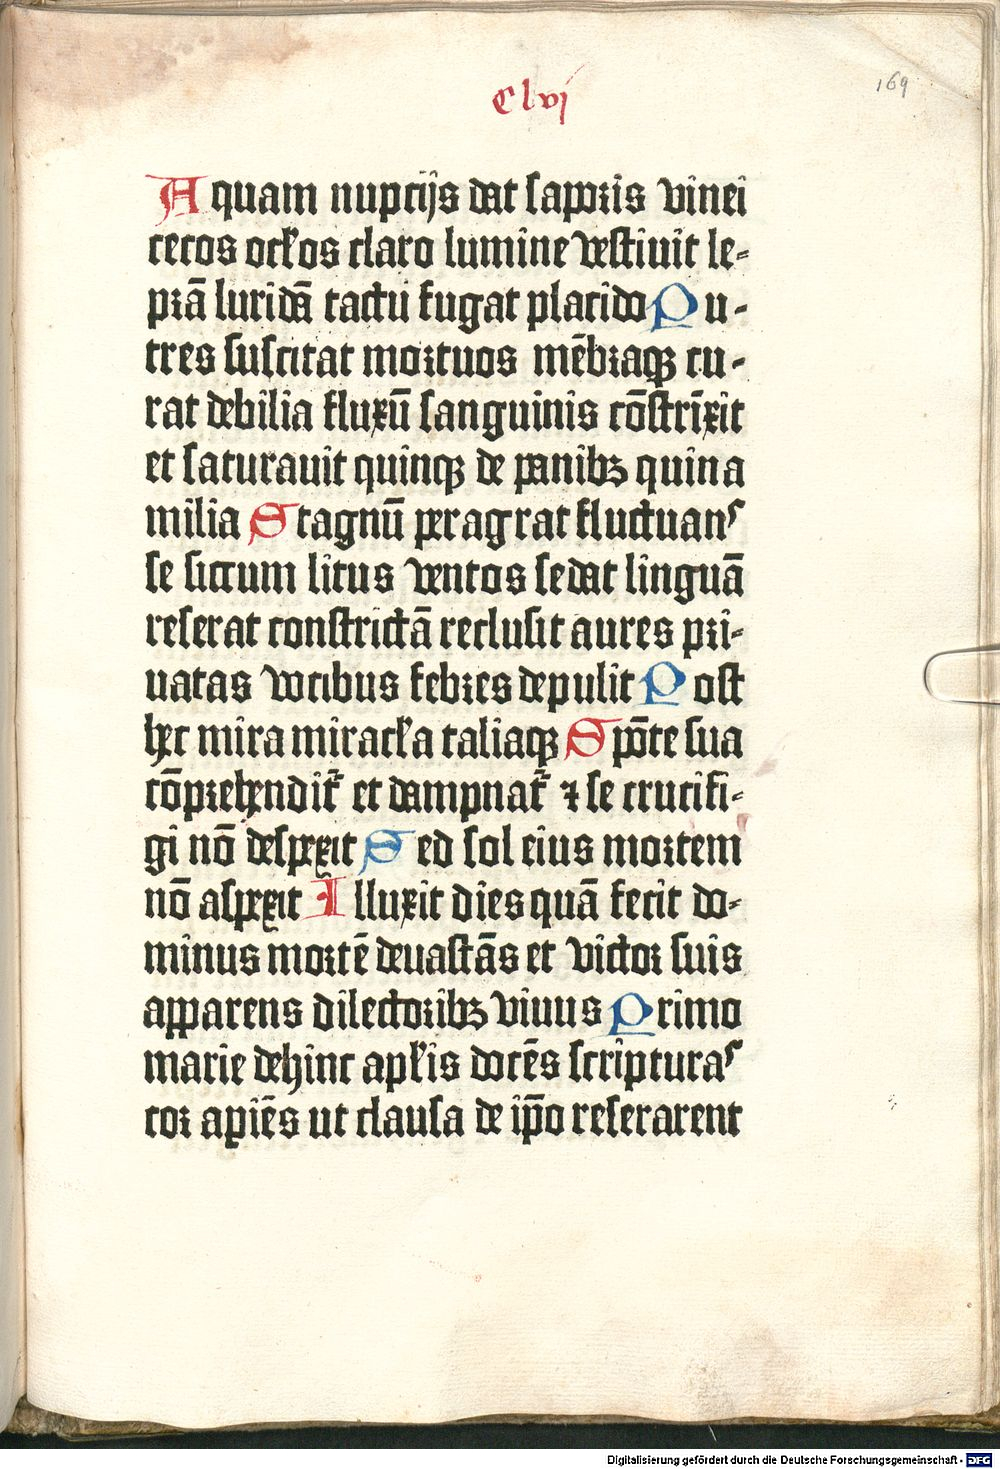 Clvj
169
Aquam nupcijs dat saporis vinei
cecos oclos claro lumine vestiuit le-
prā luridā tactu fugat placido Pu-
tres suscitat mortuos mēbraqꝫ cu-
rat debilia fluxū sanguinis cōstrīxit
et saturauit quinqꝫ de panibꝫ quina
milia Stagnū peragrat fluctuanˢ
se siccum litus ventos sedat linguā
reserat constrictā reclusit aures pri-
uatas vocibus febres depulit Post
hec mira miracl̄a taliaqꝫ Spōte sua
cōprehendit᷑ et dampnat᷑ ⁊ se crucifi-
gi nō despexit Sed sol eius mortem
nō aspexit Illuxit dies quā fecit do-
minus mortē deuastās et victor suis
apparens dilectoribꝫ viuus Primo
marie dehinc apl̄is docēs scripturaˢ
cor apiēs ut clausa de ip̄o reserarent
Digitalisierung gefördert durch die Deutsche Forschungsgemeinschaft - DFG